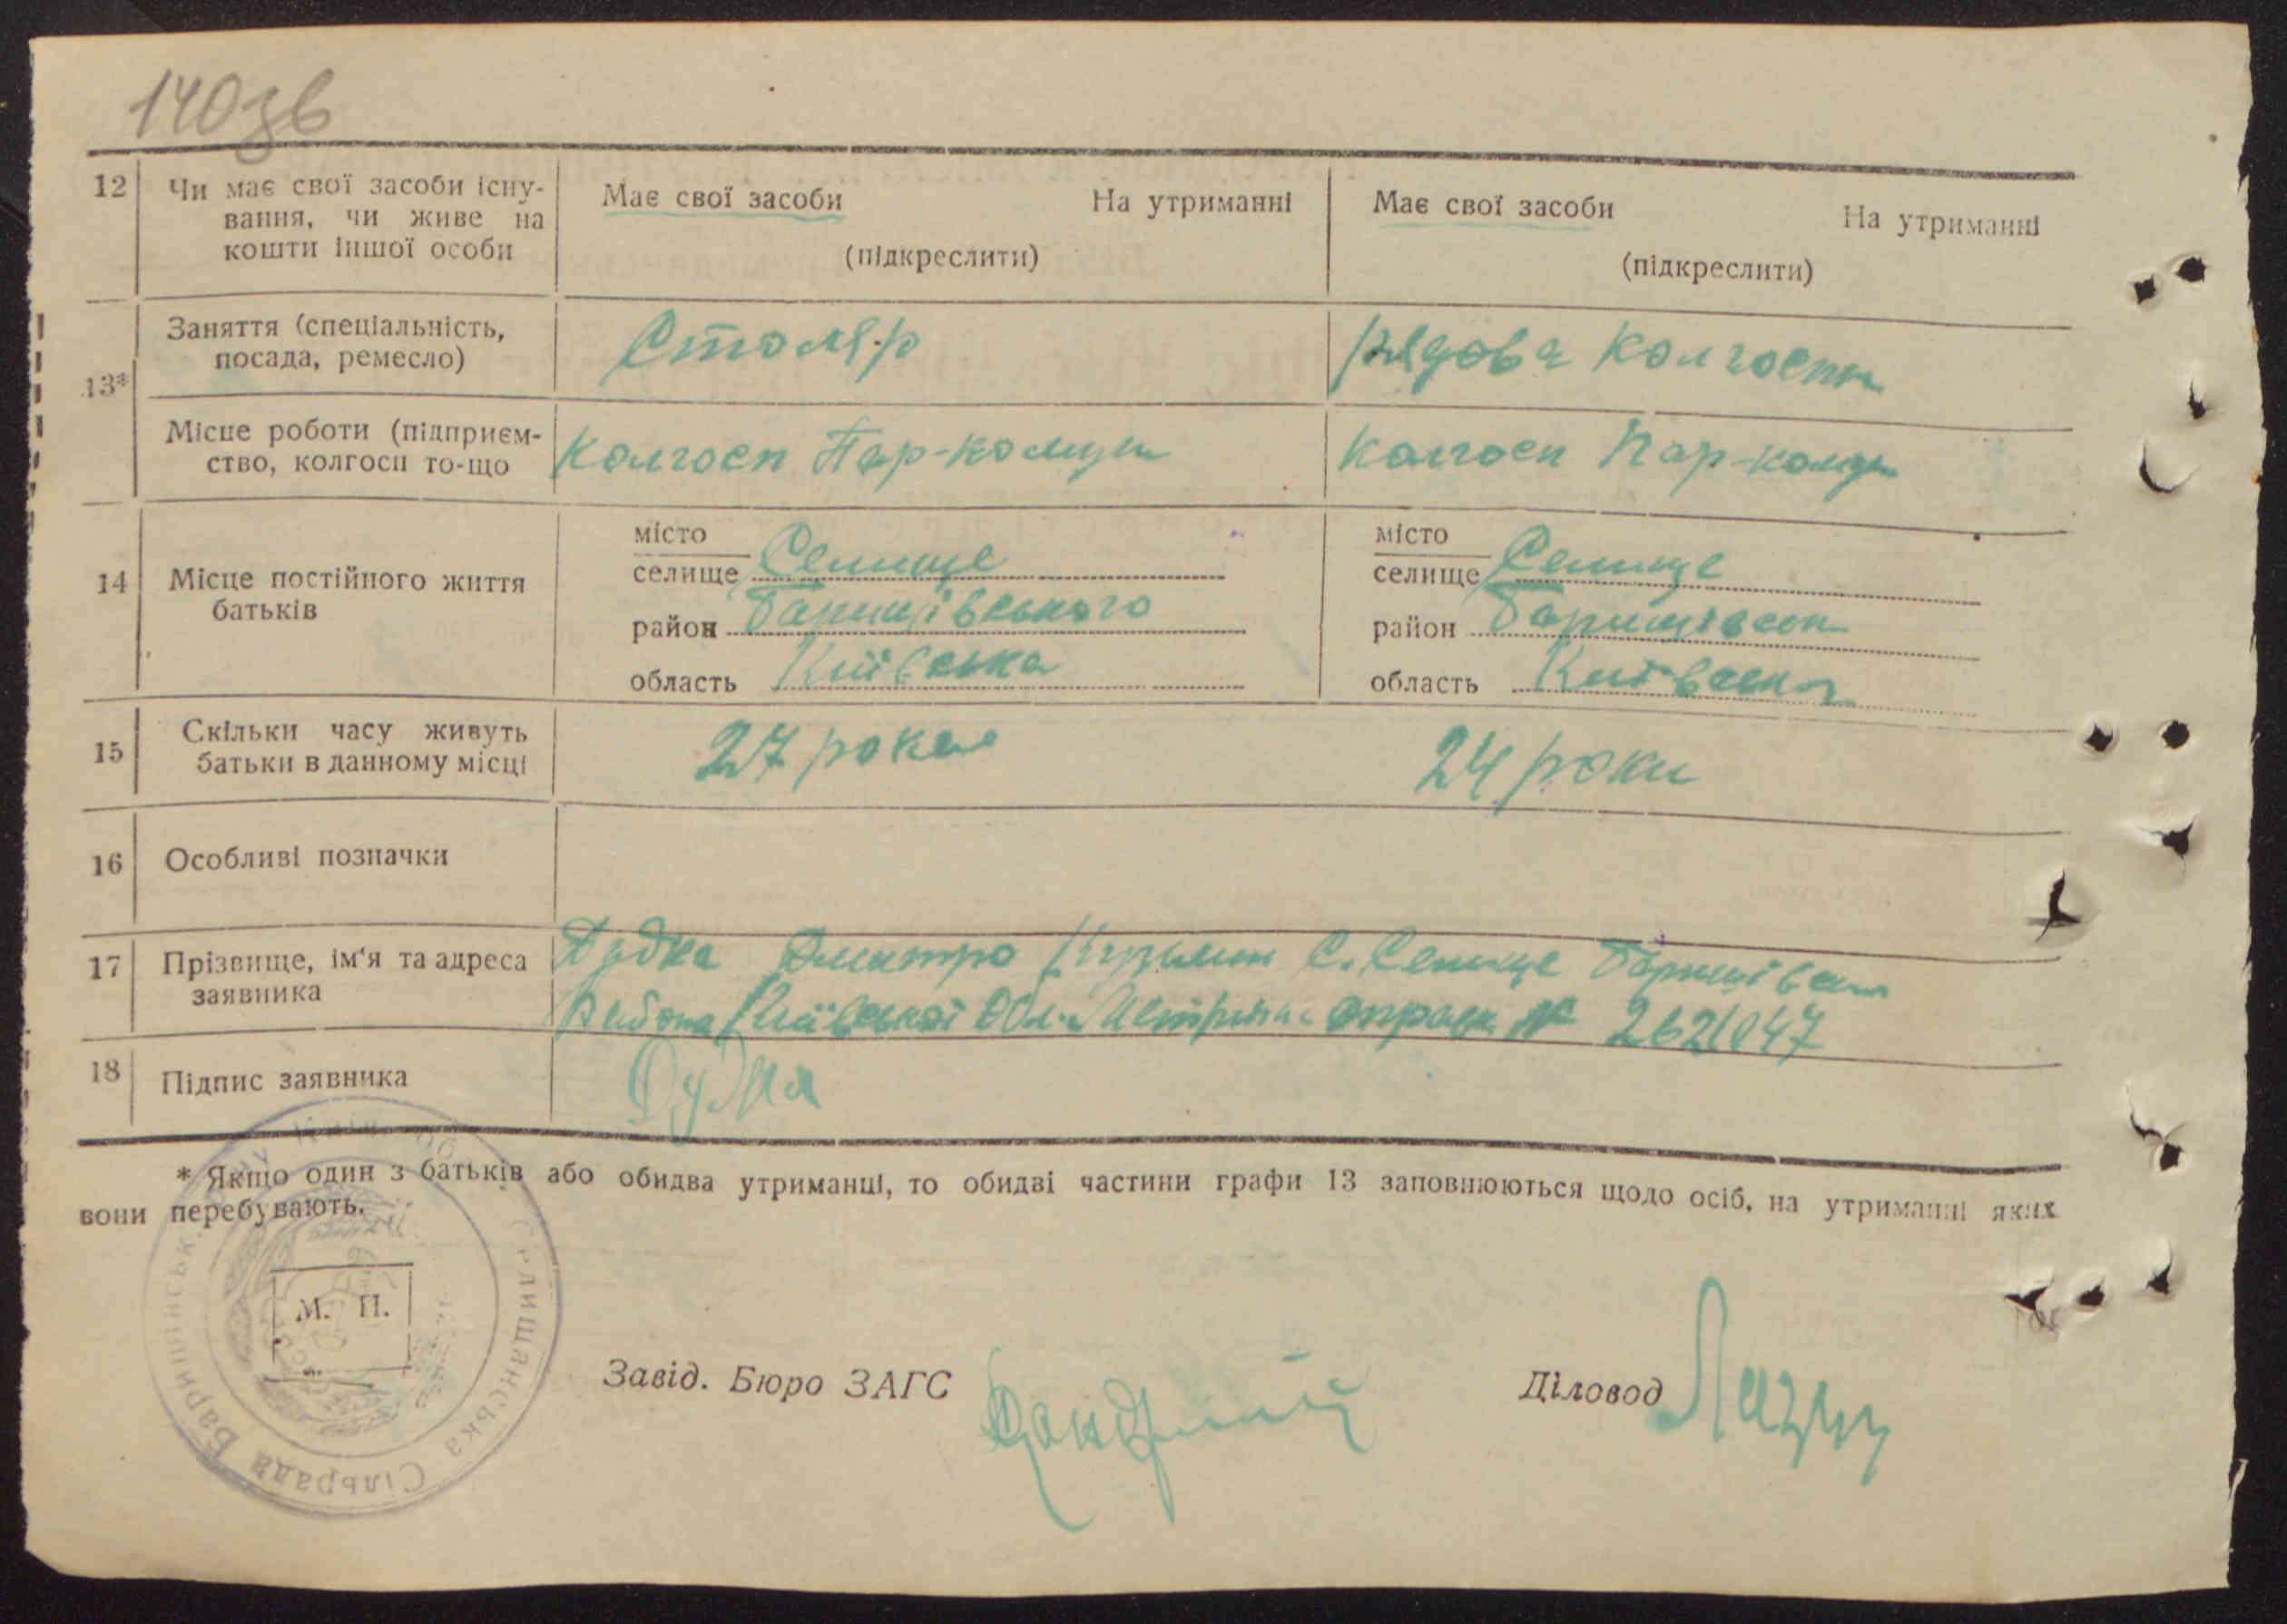 140зв
12 Чи має свої засоби існу-
вання, чи живе на
кошти іншої особи
Має свої засоби На утриманні
(підкреслити)
Має свої засоби На утриманні
(підкреслити)
13*
Заняття (спеціальність,
посада, ремесло)
Столяр
рядова колгоспн
Місце роботи (підприєм-
ство, колгосп то-що
Колгосп Пар-комун
Колгосп Пар-комун
14 Місце постійного життя
батьків
місто
селище Селище
район Баришівського
область Київська
місто
селище Селище
район Баришівськ
область Київська
15 Скільки часу живуть
батьки в данному місці
27 роки
24 роки
16 Особливі позначки
17 Прізвище, ім'я та адреса
заявника
Дудка Дмитро С. Селище Баришівськ
району Київської Обл. № 262/047
18 Підпис заявника
* Якщо один з батьків або обидва утриманці, то обидві частини графи 13 заповнюються щодо осіб, на утриманні яких
вони перебувають.
Селищанська Сільрада Баришівськ
М. П.
Завід. Бюро ЗАГС
Діловод